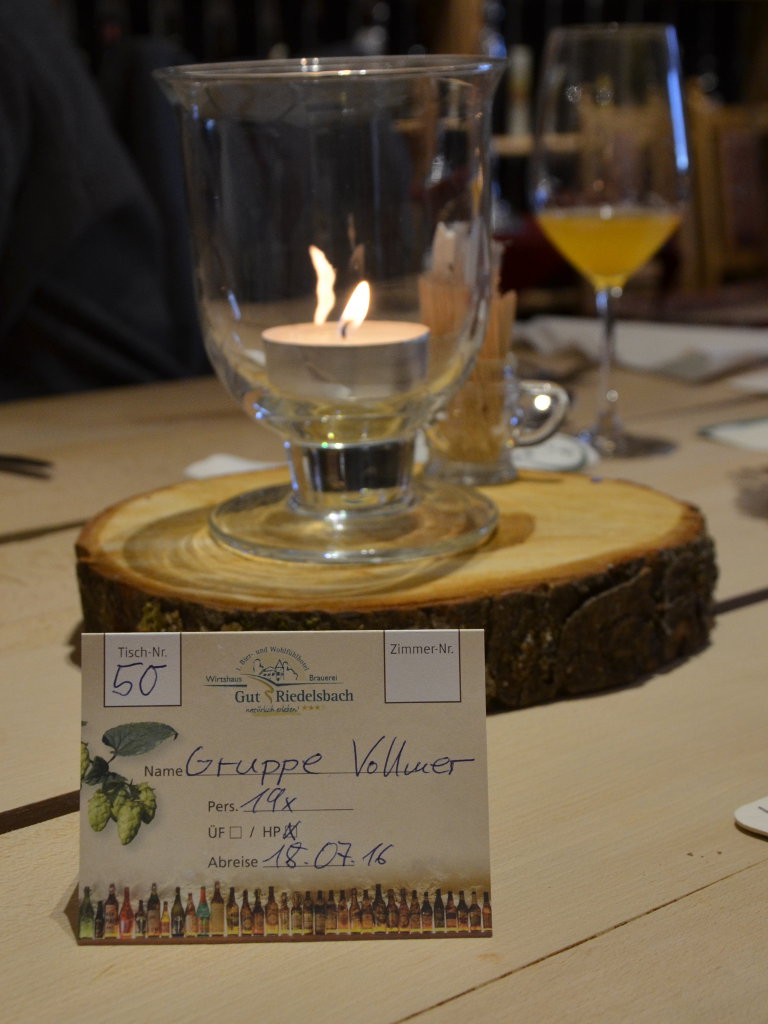 Tisch-Nr.
50
1. Bier- und Wohlfühlhotel
Wirtshaus Brauerei
Gut Riedelsbach
natürlich erleben! ***
Zimmer-Nr.
Name Gruppe Vollmer
Pers. 19x
ÜF ☐ / HP ☒
Abreise 18.07.16